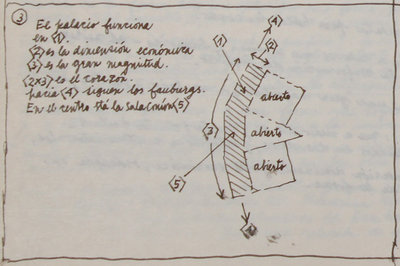 3
El palacio funciona
en <1>.
<2> es la dimensión económica
<3> es la gran magnitud.
<2x3> es el corazón.
hacia <4> siguen los faubergs.
En el centro stá la Sala Común <5>
<4>
<1>
<2>
abierto
<3>
abierto
abierto
<5>